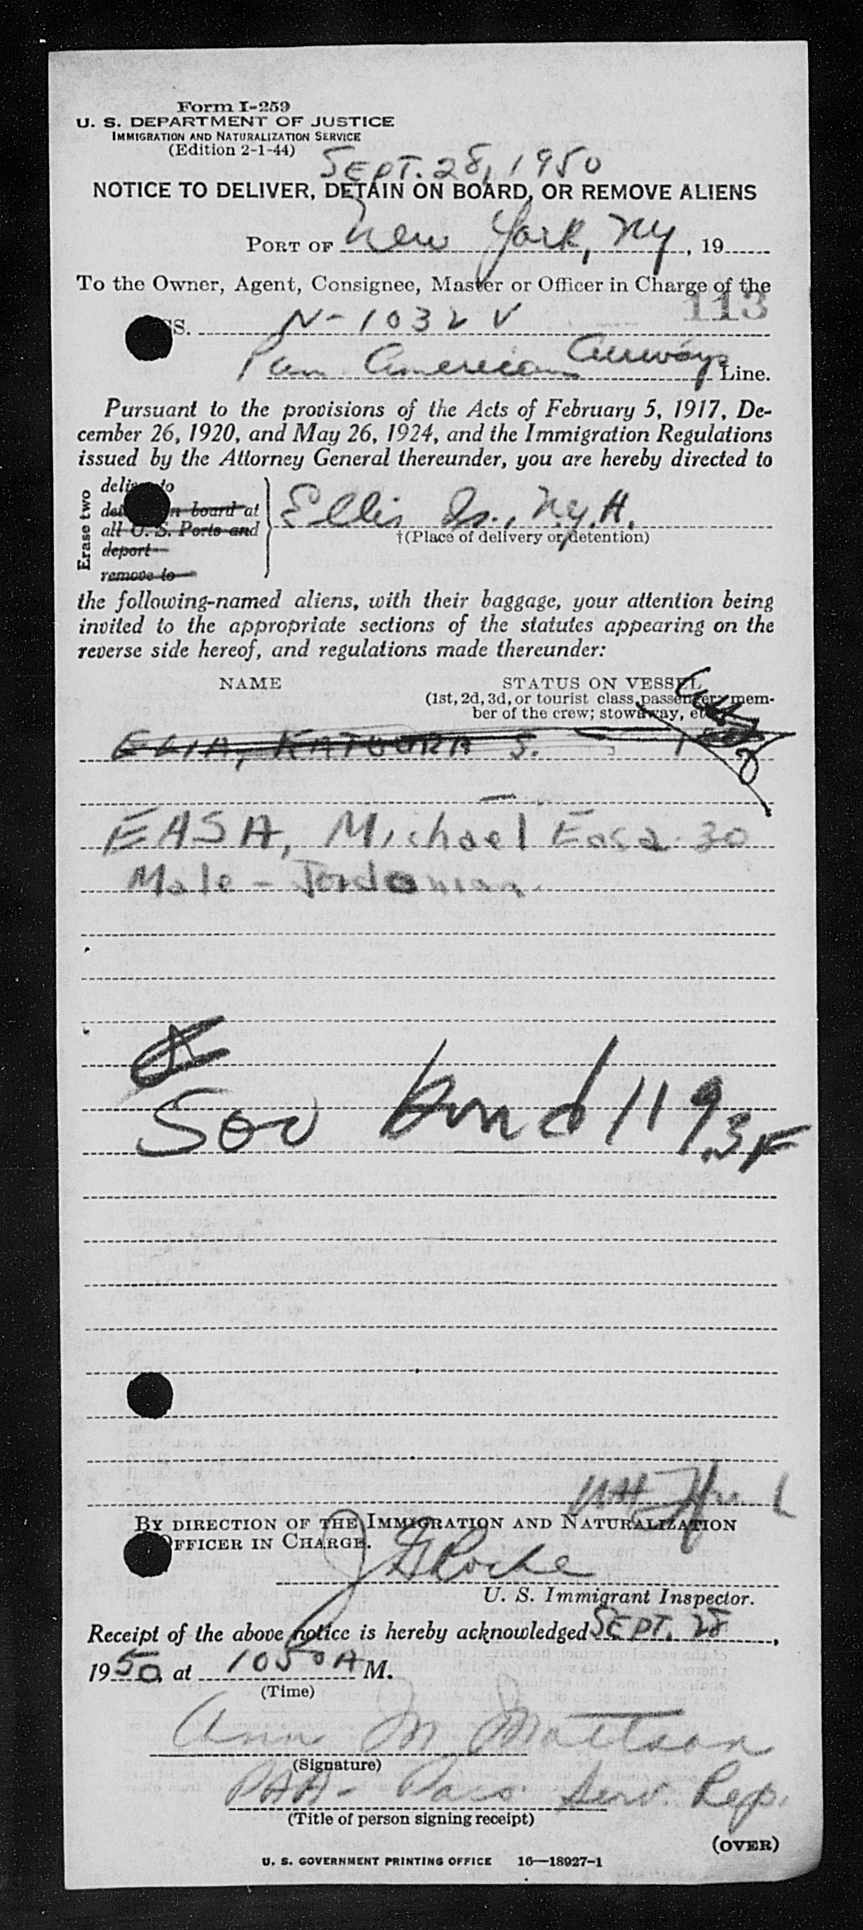 Form I-259
U. S. DEPARTMENT OF JUSTICE
IMMIGRATION AND NATURALIZATION SERVICE
(Edition 2-1-44)
SEPT. 28, 1950
NOTICE TO DELIVER, DETAIN ON BOARD, OR REMOVE ALIENS
PORT OF New York, NY, 19
To the Owner, Agent, Consignee, Master or Officer in Charge of the
113
SS. N-1032V
Pan American Airways Line.
Pursuant to the provisions of the Acts of February 5, 1917, De-
cember 26, 1920, and May 26, 1924, and the Immigration Regulations
issued by the Attorney General thereunder, you are hereby directed to
Erase two
deliver to
detain on board at
all U. S. Ports and
deport
remove to
Ellis Is., N.Y.H.
†(Place of delivery or detention)
the following-named aliens, with their baggage, your attention being
invited to the appropriate sections of the statutes appearing on the
reverse side hereof, and regulations made thereunder:
NAME STATUS ON VESSEL
(1st, 2d, 3d, or tourist class passenger; mem-
ber of the crew; stowaway, etc.)
ELIA, KATOURA S.
EASA, Michael Easa 30
Male - Jordanian
500 bond 1193F
BY DIRECTION OF THE IMMIGRATION AND NATURALIZATION
OFFICER IN CHARGE.
J G Roche
U. S. Immigrant Inspector.
Receipt of the above notice is hereby acknowledged SEPT. 28,
1950, at 1050 A M.
(Time)
Ann M Mattson
(Signature)
PAA - Pass. Serv. Rep.
(Title of person signing receipt)
(OVER)
U. S. GOVERNMENT PRINTING OFFICE 16—18927-1